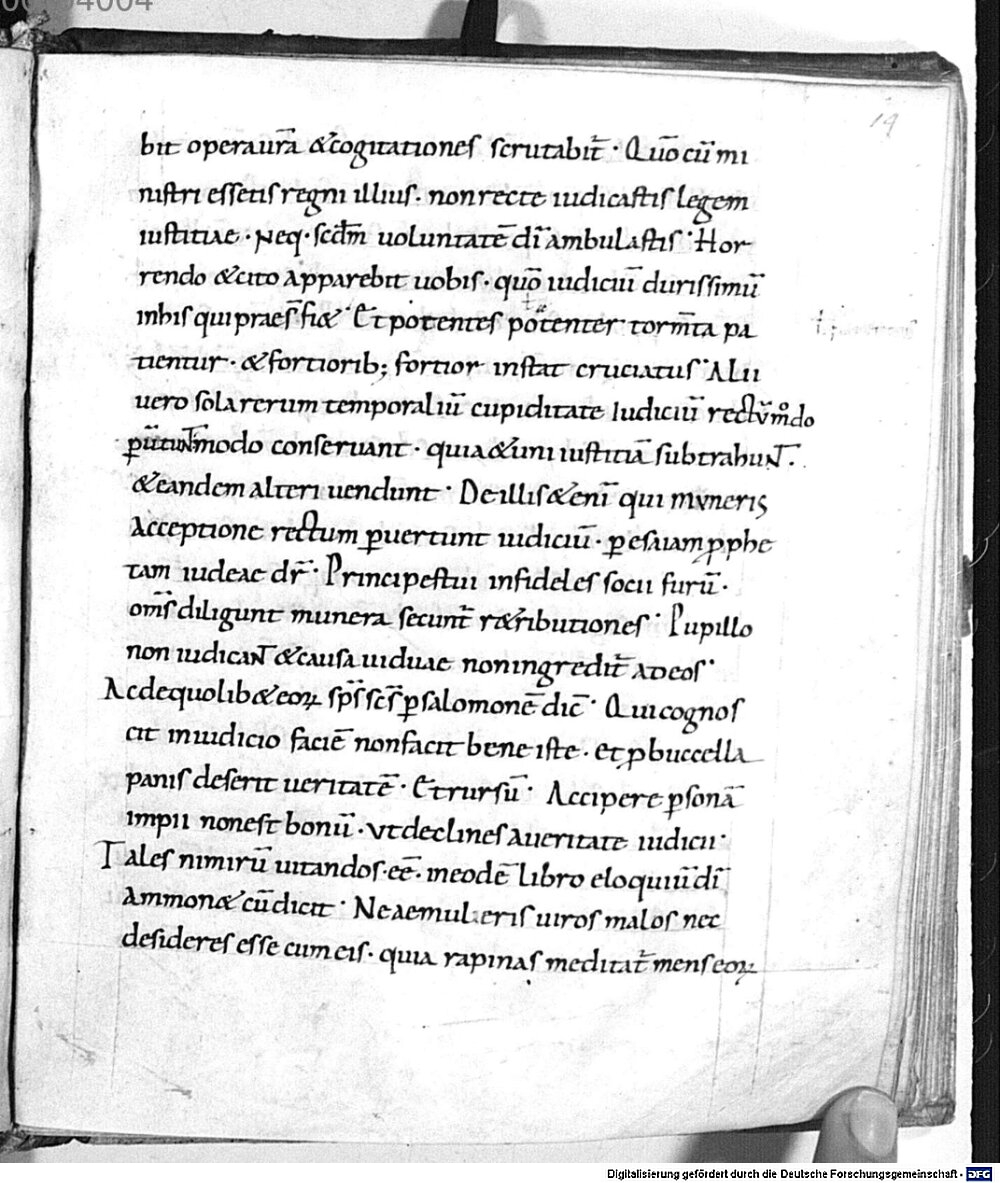 14
bit opera ur̄a &cogitationes scrutabit̄. Quō cū mi
nistri essetis regni illius. non recte iudicastis legem
iustitiae. Neq. scd̄m uoluntatē dī ambulastis. Hor
rendo &cito apparebit uobis. quō iudiciū durissimū
in his qui praes̄ fi&. Et potentes potenter torm̄ta pa
tientur. &fortiorib; fortior instat cruciatus. Alii
uero sola rerum temporaliū cupiditate Iudiciū rectū m̊do
modo conseruant. quia &uni iustitiā subtrahuNT̄.
&eandem alteri uendunt. De illis &enī qui muneris
acceptione rectum ꝑuertunt iudiciū. ꝑ esaiam ꝓphe
tam iudeae dr̄. Principes tui infideles socii furū.
om̄s diligunt munera secunt̄ r&ributiones. Pupillo
non iudicaNT &causa uiduae non ingredit̄ ad eos.
Ac de quolib& eoꝝ sp̄s sc̄s ꝑ salomonē dic̄. Qui cognos
cit in iudicio faciē non facit bene iste. et ꝓ buccella
panis deserit ueritatē. Et rursū. Accipere ꝑsonā
impii non est bonū. Vt declines a ueritate iudicii.
Tales nimirū uitandos. eē. in eodē libro eloquiū dī
ammon& cū dicit. Ne aemuleris uiros malos nec
desideres esse cum eis. quia rapinas meditat̄ mens eoꝝ
Digitalisierung gefördert durch die Deutsche Forschungsgemeinschaft - DFG